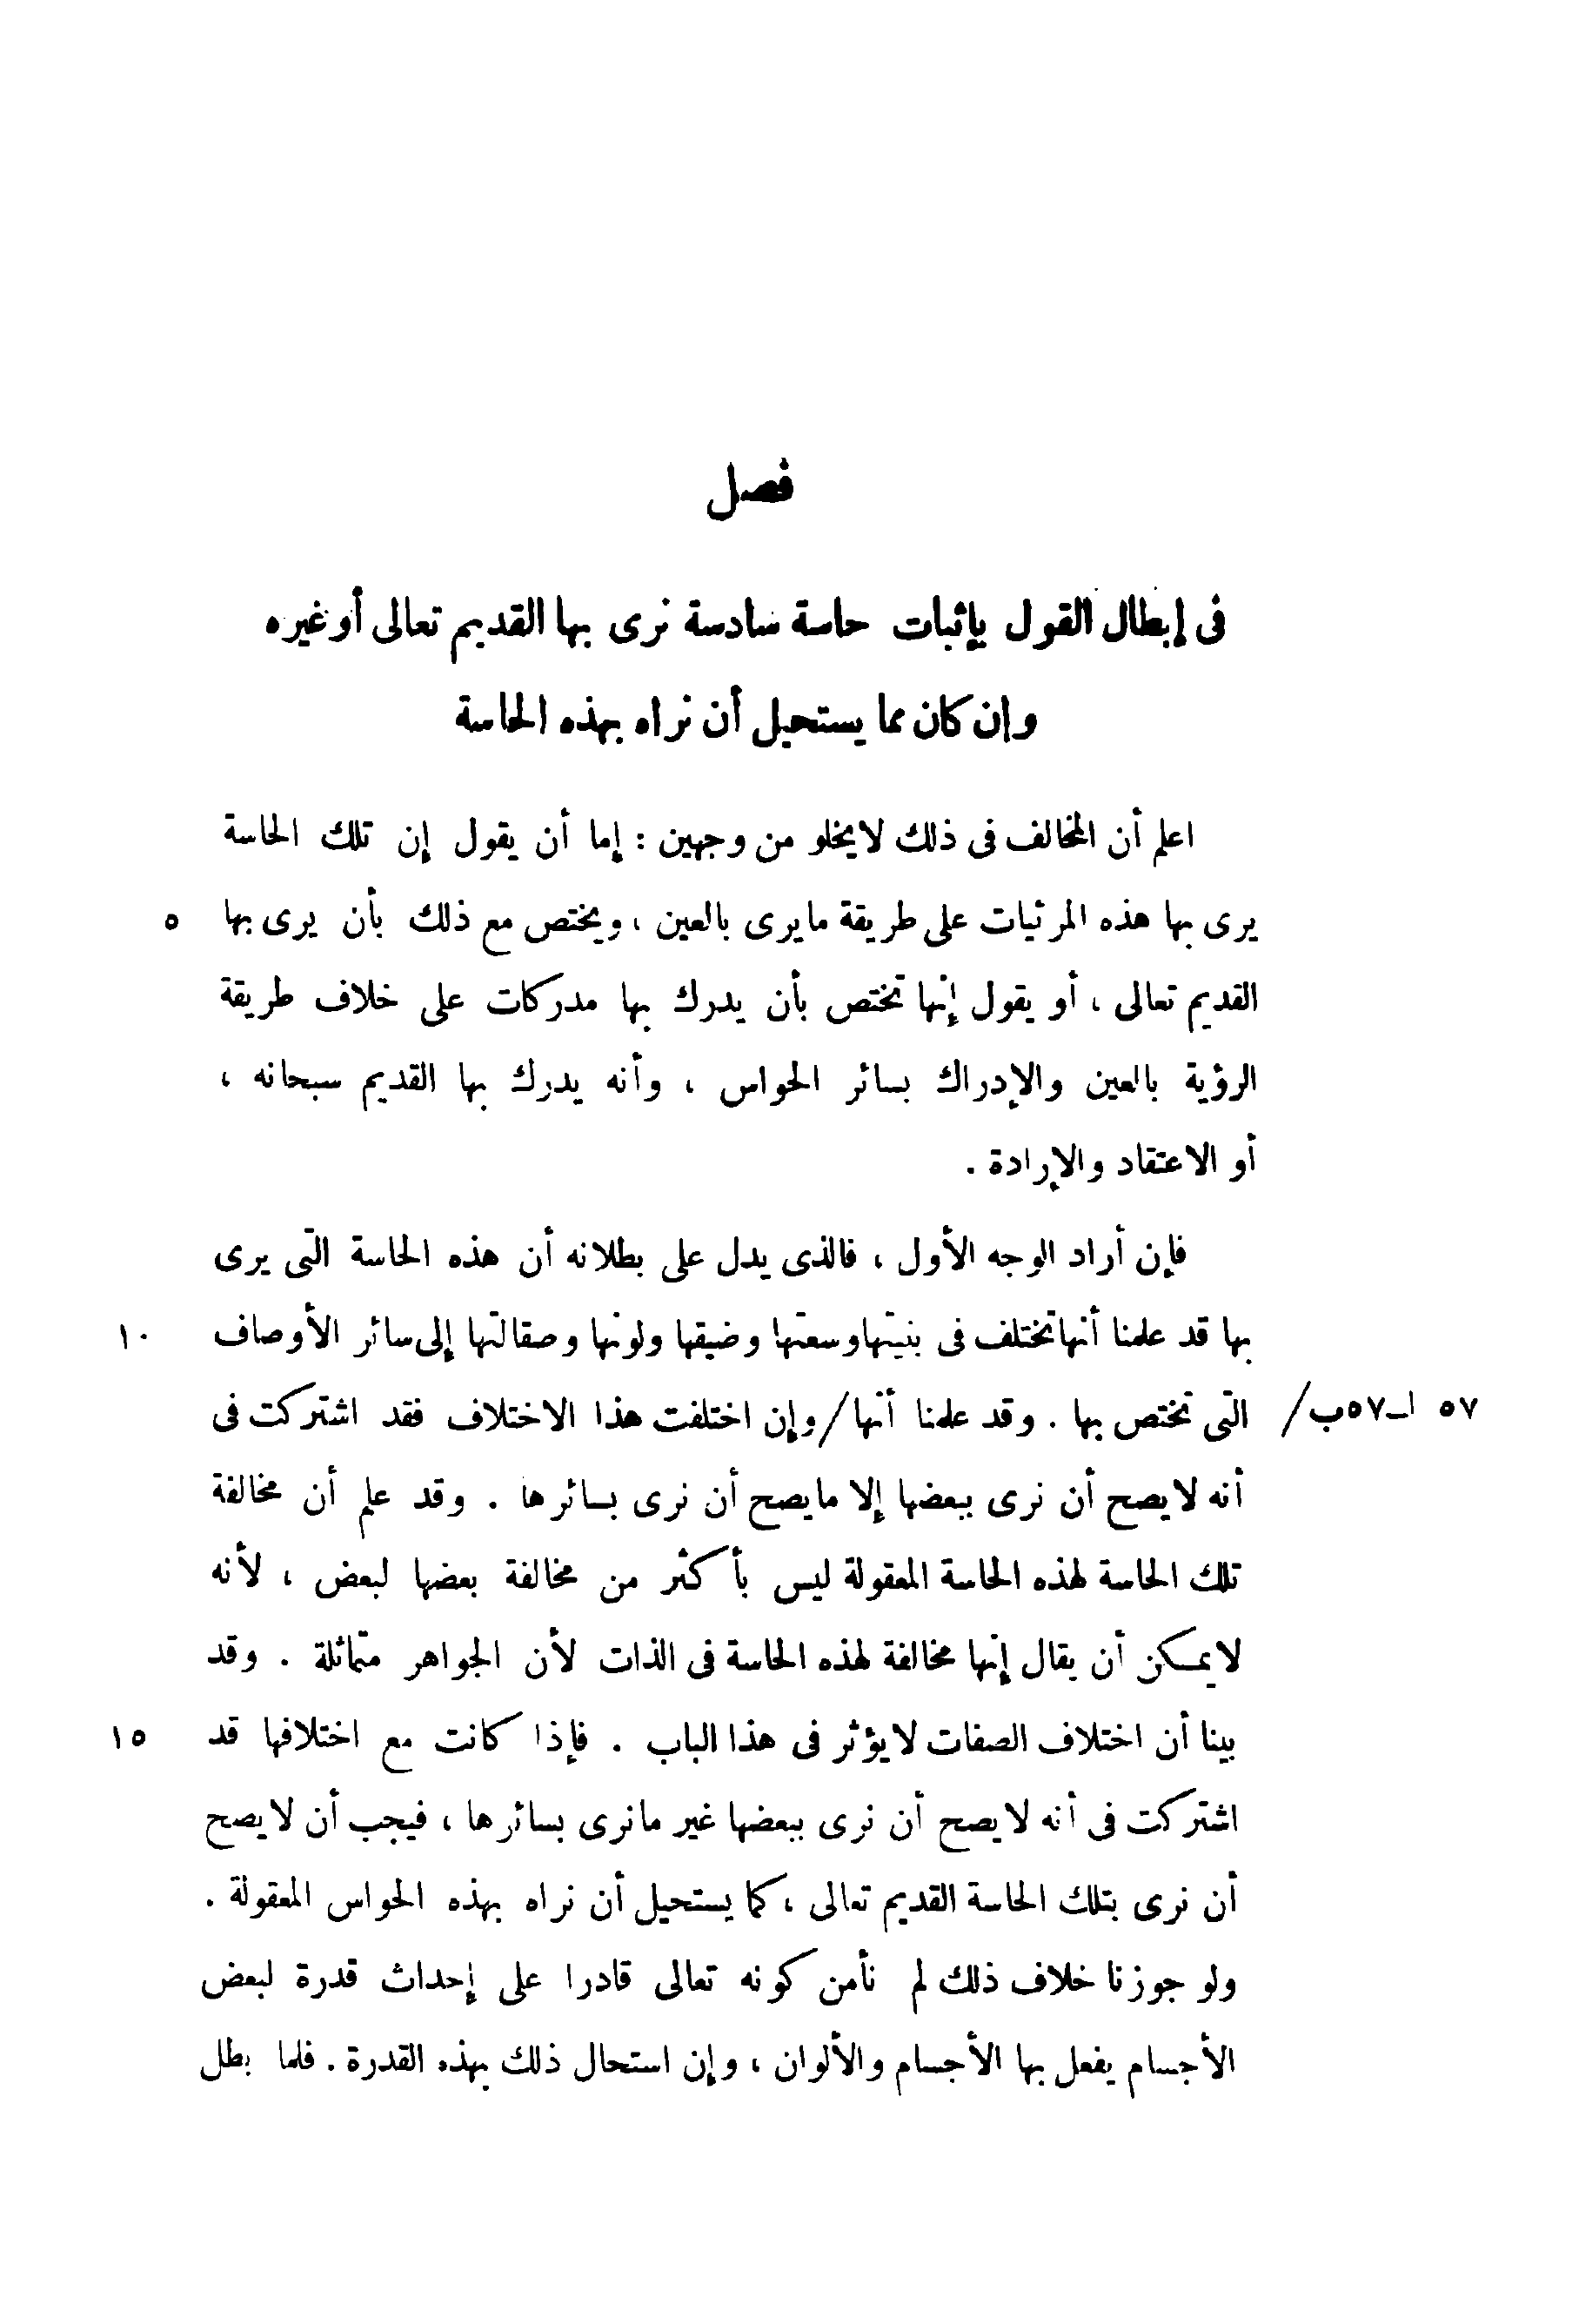 فصل
فى إبطال القول بإثبات حاسة سادسة نرى بها القديم تعالى أو غيره
وإن كان مما يستحيل أن نراه بهذه الحاسة
اعلم أن المخالف فى ذلك لا يخلو من وجهين : إما أن يقول إن تلك الحاسة
يرى بها هذه المرئيات على طريقة ما يرى بالعين ، ويختص مع ذلك بأن يرى بها ٥
القديم تعالى ، أو يقول إنها تختص بأن يدرك بها مدركات على خلاف طريقة
الرؤية بالعين والإدراك بسائر الحواس ، وأنه يدرك بها القديم سبحانه ،
أو الاعتقاد والإرادة .
فإن أراد الوجه الأول ، فالذى يدل على بطلانه أن هذه الحاسة التى يرى
بها قد علمنا أنها تختلف فى بنيتها وسعتها وضيقها ولونها وصقالتها إلى سائر الأوصاف ١٠
٥٧ ا ــ ٥٧ب/ التى تختص بها . وقد علمنا أنها / وإن اختلفت هذا الاختلاف فقد اشتركت فى
أنه لا يصح أن نرى ببعضها إلا ما يصح أن نرى بسائرها . وقد علم أن مخالفة
تلك الحاسة لهذه الحاسة المعقولة ليس بأكثر من مخالفة بعضها لبعض ، لأنه
لا يمكن أن يقال إنها مخالفة لهذه الحاسة فى الذات لأن الجواهر متماثلة . وقد
بينا أن اختلاف الصفات لا يؤثر فى هذا الباب . فإذا كانت مع اختلافها قد ١٥
اشتركت فى أنه لا يصح أن نرى ببعضها غير ما نرى بسائرها ، فيجب أن لا يصح
أن نرى بتلك الحاسة القديم تعالى ، كما يستحيل أن نراه بهذه الحواس المعقولة .
ولو جوزنا خلاف ذلك لم نأمن كونه تعالى قادرا على إحداث قدرة لبعض
الأجسام يفعل بها الأجسام والألوان ، وإن استحال ذلك بهذه القدرة . فلما بطل